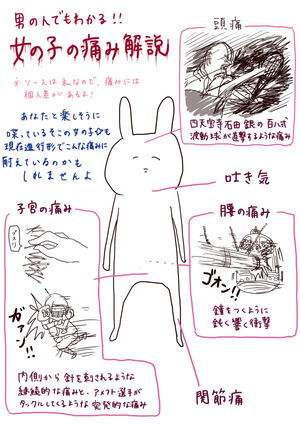 男の人でもわかる!!
女の子の痛み解説
※ソースは私なので、痛みには
個人差があるよ!
あなたと楽しそうに
喋っているそこの女の子も
現在進行形でこんな痛みに
耐えているのかも
しれませんよ
頭痛
四天宝寺石田銀の百八式
波動球が直撃するような痛み
吐き気
子宮の痛み
ガァン!!
内側から針を刺されるような
継続的な痛みと、アメフト選手が
タックルしてくるような突発的な痛み
腰の痛み
ゴオン!!
鐘をつくように
鈍く響く衝撃
関節痛